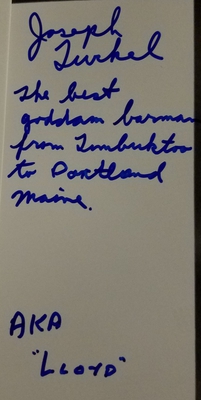 Joseph
Turkel
The best
goddam barman
from Timbuktoo
to Portland
Maine.
AKA
"LLOYD"